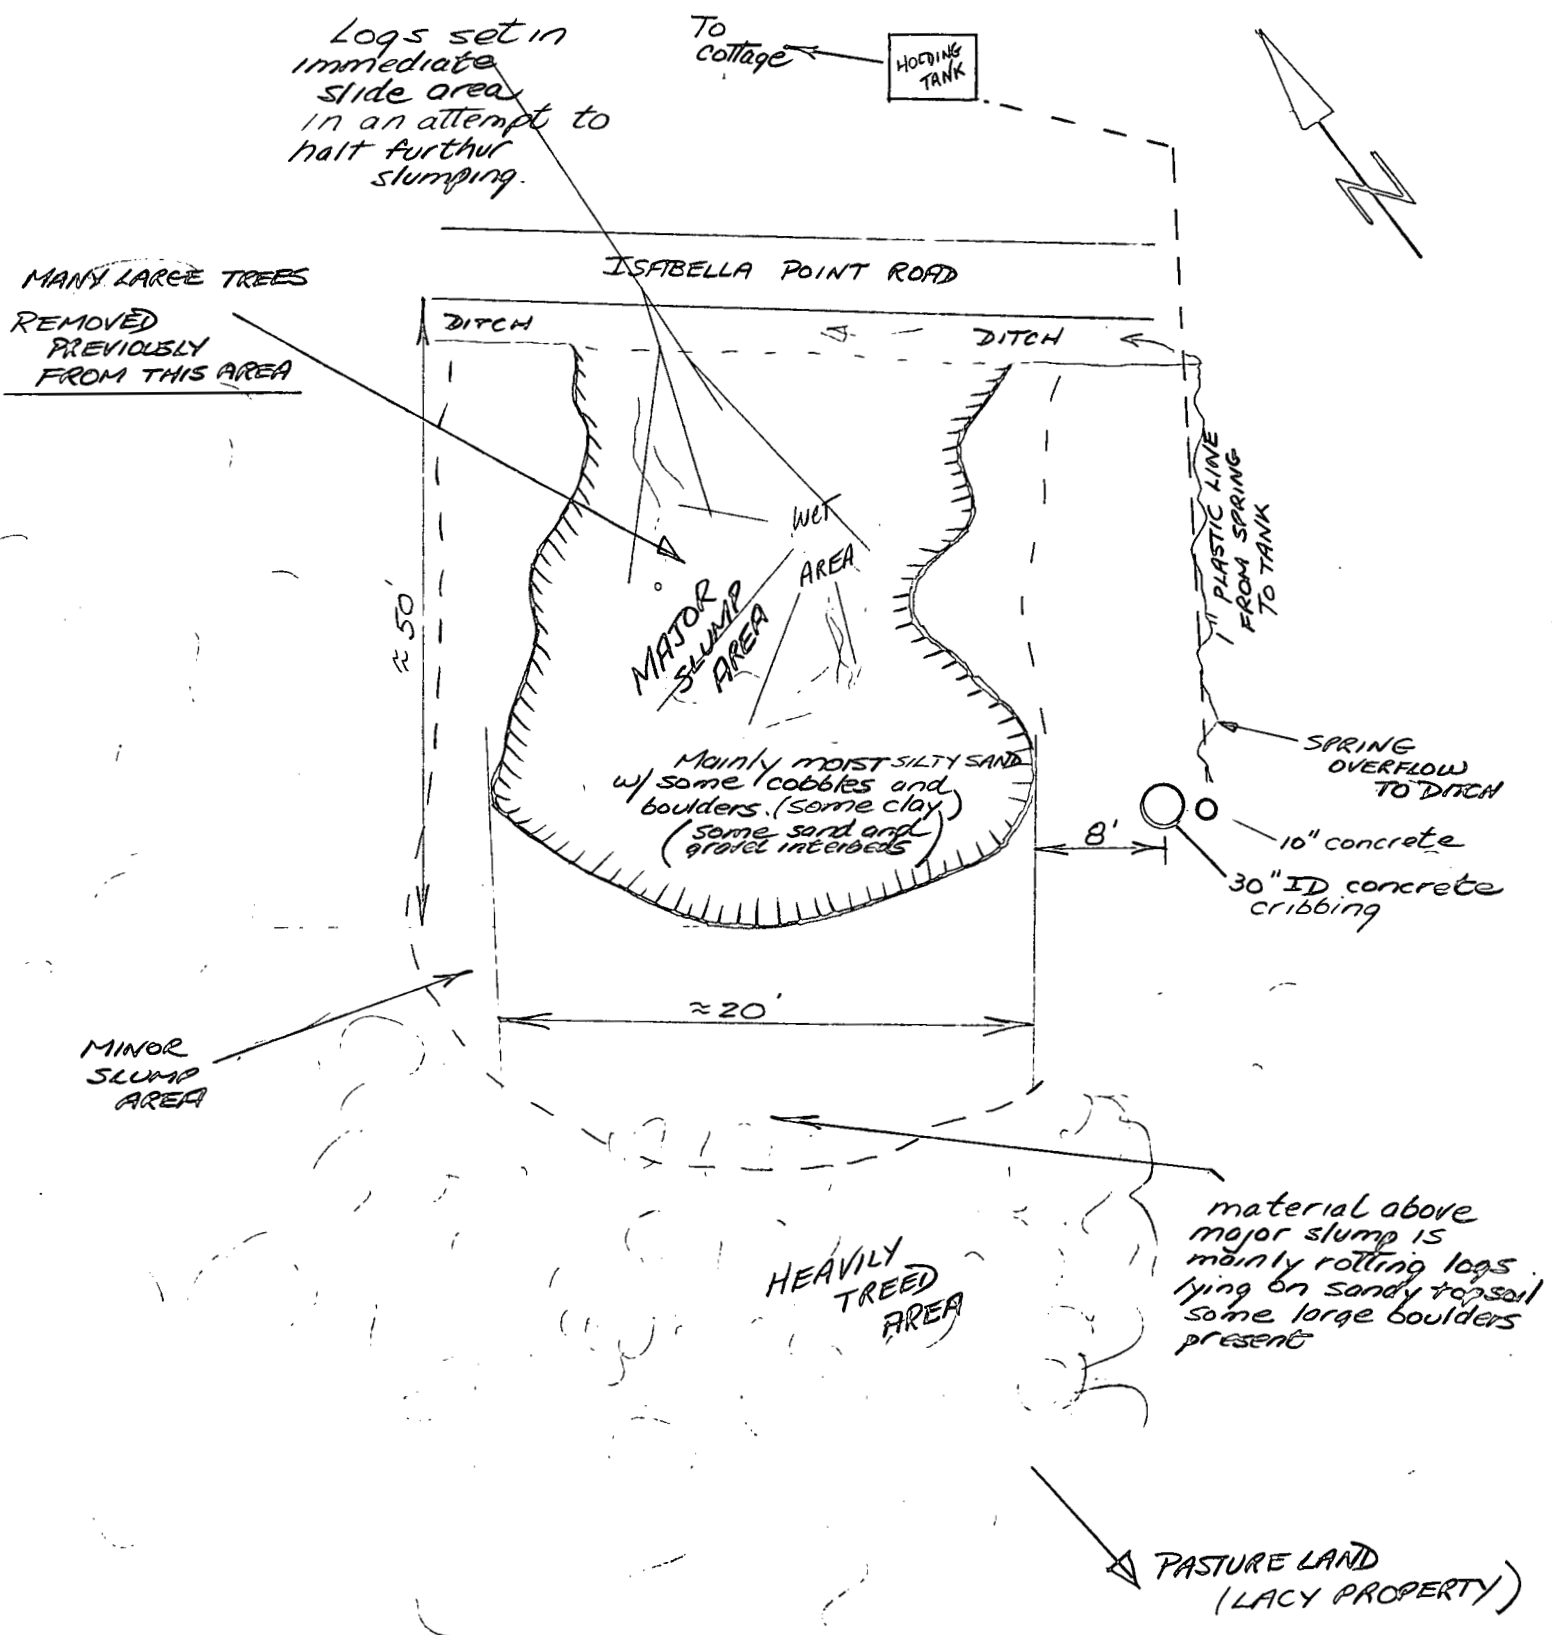 Logs set in
immediate
slide area
in an attempt to
halt furthur
slumping.
To
cottage
HOLDING
TANK
N
ISABELLA POINT ROAD
MANY LARGE TREES
REMOVED
PREVIOUSLY
FROM THIS AREA
DITCH
DITCH
1" PLASTIC LINE
FROM SPRING
TO TANK
≈50'
WET
AREA
MAJOR
SLUMP
AREA
Mainly moist SILTY SAND
w/ some cobbles and
boulders. (some clay)
(some sand and
gravel interbeds)
SPRING
OVERFLOW
TO DITCH
8'
10" concrete
30" ID concrete
cribbing
≈20'
MINOR
SLUMP
AREA
material above
major slump is
mainly rotting logs
lying on sandy topsoil
some large boulders
present
HEAVILY
TREED
AREA
PASTURE LAND
(LACY PROPERTY)